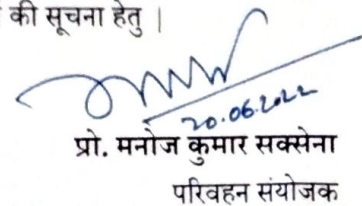 की सूचना हेतु |
20.06.2022
प्रो. मनोज कुमार सक्सेना
परिवहन संयोजक